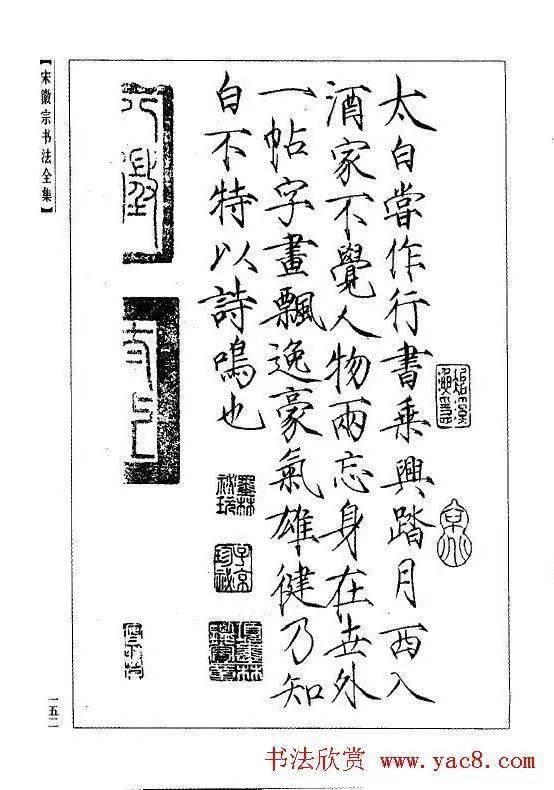 太白嘗作行書乘興踏月西入
酒家不覺人物兩忘身在世外
一帖字畫飄逸豪氣雄健乃知
白不特以詩鳴也
墨林
秘玩
子京
珍秘
【宋徽宗书法全集】
一五二
书法欣赏 www.yac8.com